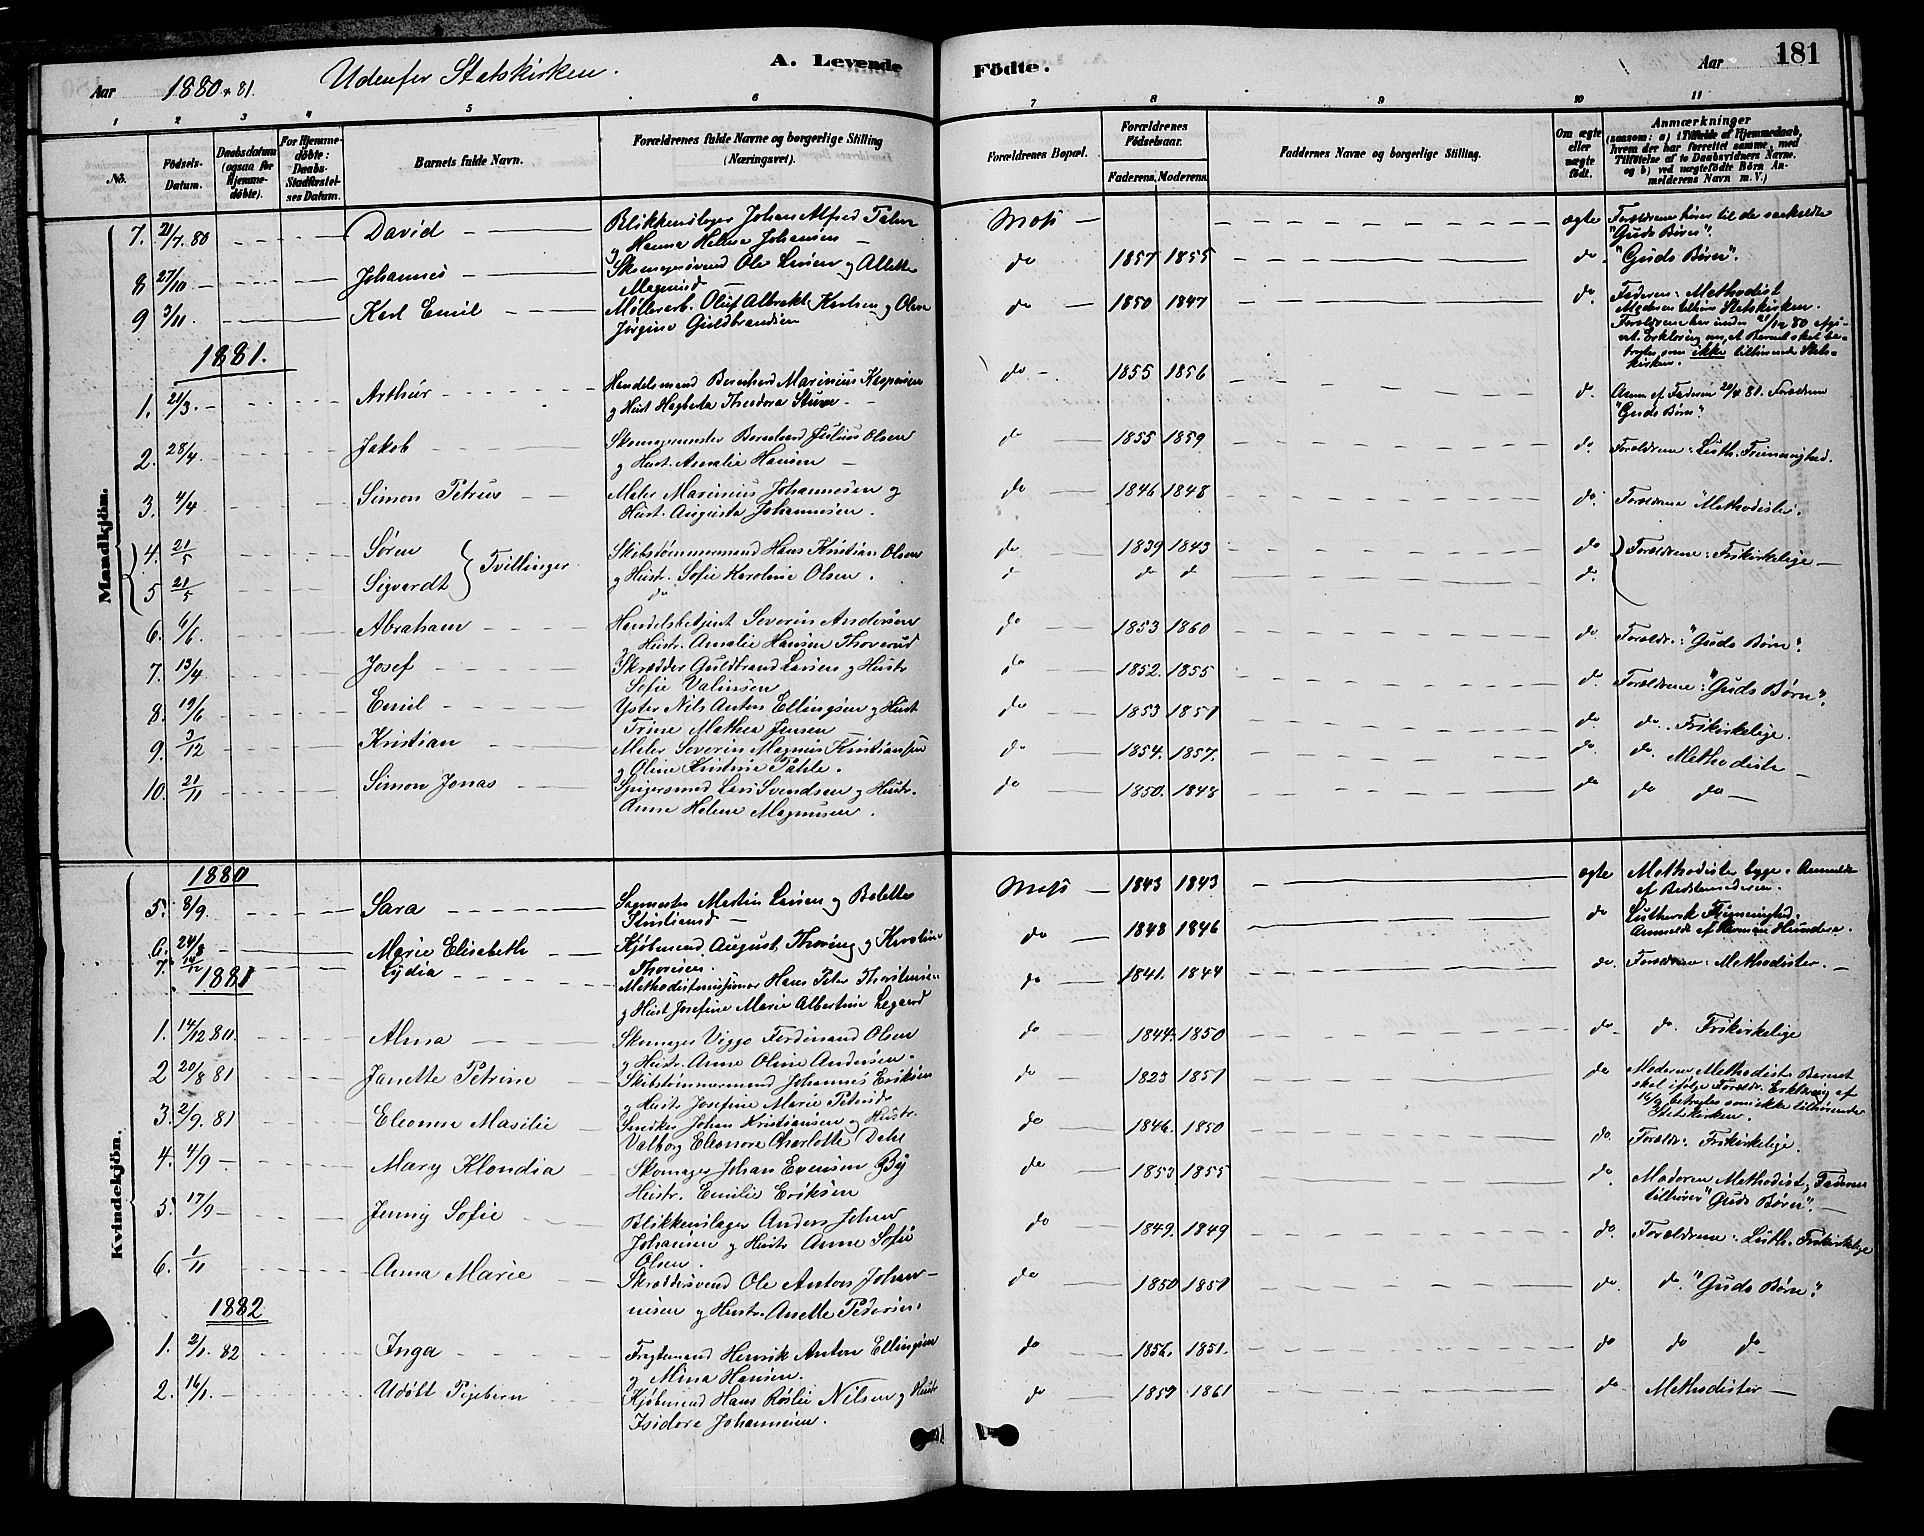 Aar 1880 & 81. Udenfor Statskirken. A. Levende Födte. Aar 181
1 2 3 4 5 6 7 8 9 10 11
No. Födsels-Datum. Daabsdatum (ogsaa for Hjemmedöbte). For Hjemmedöbte: Daabs-Stadfæstelses Datum. Barnets fulde Navn. Forældrenes fulde Navne og borgerlige Stilling (Næringsvei). Forældrenes Bopæl. Forældrenes Födselsaar. Faderens. Moderens. Faddernes Navne og borgerlige Stilling. Om ægte eller uægte födt. Anmærkninger (saasom: a) i Tilfælde af Hjemmedaab, hvem der har forrettet samme, med Tilföielse af to Daabsvidners Navne, og b) ved uægtefödte Börn Anmelderens Navn m. V.)
Mandkjön.
7. 21/7. 80 David Blikkenslager Johan Alfred
og Hanna Helene Johansen Moss ægte Forældrene hører til de saakaldte
"Guds Børn".
8 27/10 Johannes Skomagersvend Ole Larsen og Alette
Magnusd do 1857 1855 do "Guds Børn".
9 3/11 Karl Emil Møllerarb. Oluf Albrekt Karlsen og Olava
Jørgine Guldbrandsen do 1850 1847 do Faderen: Methodist
Moderen tilhører Statskirken.
Forældrene har under 21/12 80 afgi-
vet Erklæring om, at Barnet skal be-
tragtes som ikke tilhørende Stats-
kirken.
1881.
1. 21/3. Arthur Handelsmand Bernhard Marinius Kaspersen
og Hust Hagberta Theodora Sture do 1855 1856 d. Anm. af Faderen 20/4 81. Forældrene
"Guds Børn".
2. 28/4. Jakob Skomagermester Bernhard Julius Olsen
og Hust. Amalie Hansen do 1855 1859 do Forældrene: Luth. Frimenighed.
3. 4/4 Simon Petrus Maler Marinius Johannesen og
Hust. Augusta Johannesen. do 1846 1848 do Forældrene Methodister.
4. 21/5 Søren Tvillinger Skibstømmermand Hans Kristian Olsen do 1839 1843 do Forældrene: Frikirkelige
5 21/5 Sigvardt og Hustr. Sofie Karoline Olsen. do do do do
6. 6/6. Abraham Handelsbetjent Severin Andersen
Hustr. Amalie Hansen Thorerud do 1853 1860 do Forældr.: "Guds Børn".
7. 13/4 Josef Skrædder Guldbrand Larsen og Hustr
Sofie do 1852. 1855 d. Forældrene: "Guds Børn".
8. 19/6 Emil Nils Anton Ellingsen og Hust
Trine Mathea Jensen do 1853 1851 do do. Frikirkelige.
9. 3/12 Kristian Maler Severin Magnus Kristiansen
og Oline Kristine do 1854. 1857. do do. Methodister
10. 21/11 Simon Jonas Lars Svendsen og Hustr.
Anne Helene Magnusen. do 1850. 1848 do do do
Kvindekjön.
1880
5. 8/9. Sara Sagmester Martin Larsen og Bolette
Kristiansd Moss 1843 1843 ægte Methodister begge. Anmeldt
af Bedstemoderen.
6. 24/8 Marie Elisabeth Kjøbmand August Thoring og Karoline
do 1848 1846 do Luthersk Frimenighed.
Anmeldt af
7. 14/12 Lydia Methodistmissionær Hans Peter
og Hust Josefine Marie Albertine do 1841. 1844 do. Forældrene: Methodister.
1881
1. 14/12 80 Alma Skomager Viggo Ferdinand Olsen
og Hustr. Anne Oline Andersen. do 1844. 1850 do do. Frikirkelige
2 20/8 81 Janette Petrine Skibstømmermand Johannes Eriksen
og Hust. Josefine Marie Petersd. do 1823 1851 do Moderen Methodist. Barnet
skal ifølge Forældr. Erklæring af
16/9 betragtes som ikke tilhørende
Statskirken.
3. 2/9. 81 Eleonne Masilie Snedker Johan Kristiansen og Hustr.
Valborg Eleonora Charlotte Dahl do 1846. 1850 do. Forældr: Frikirkelige.
4. 4/9 Mary Klondia Skomager Johan Evensen By
Hustr. Emilie Eriksen do 1853 1855 do. Moderen Methodist, Faderen
tilhører "Guds Børn".
5. 17/9 Jenny Sofie Blikkenslager Anders Johan
Johansen og Hustr Anne Sofie
Olsen. do 1849. 1849 do. Forældrene: Luth. Frikirkelige
6. 1/11 Anna Marie Skræddersvend Ole Anton Johan-
nesen og Hustr. Anette Pedersen. do 1850 1851 do do. "Guds Børn".
1882
1. 2/1. 82 Inga Fragtemand Henrik Anton Ellingsen
og Mina Hansen. do 1856. 1851. do do do
2. 16/1. Udøbt Pigebarn Kjøbmand Hans Røslie Nilsen og Hustr
Isidore Johannesen. do 1857 1861 do Methodister